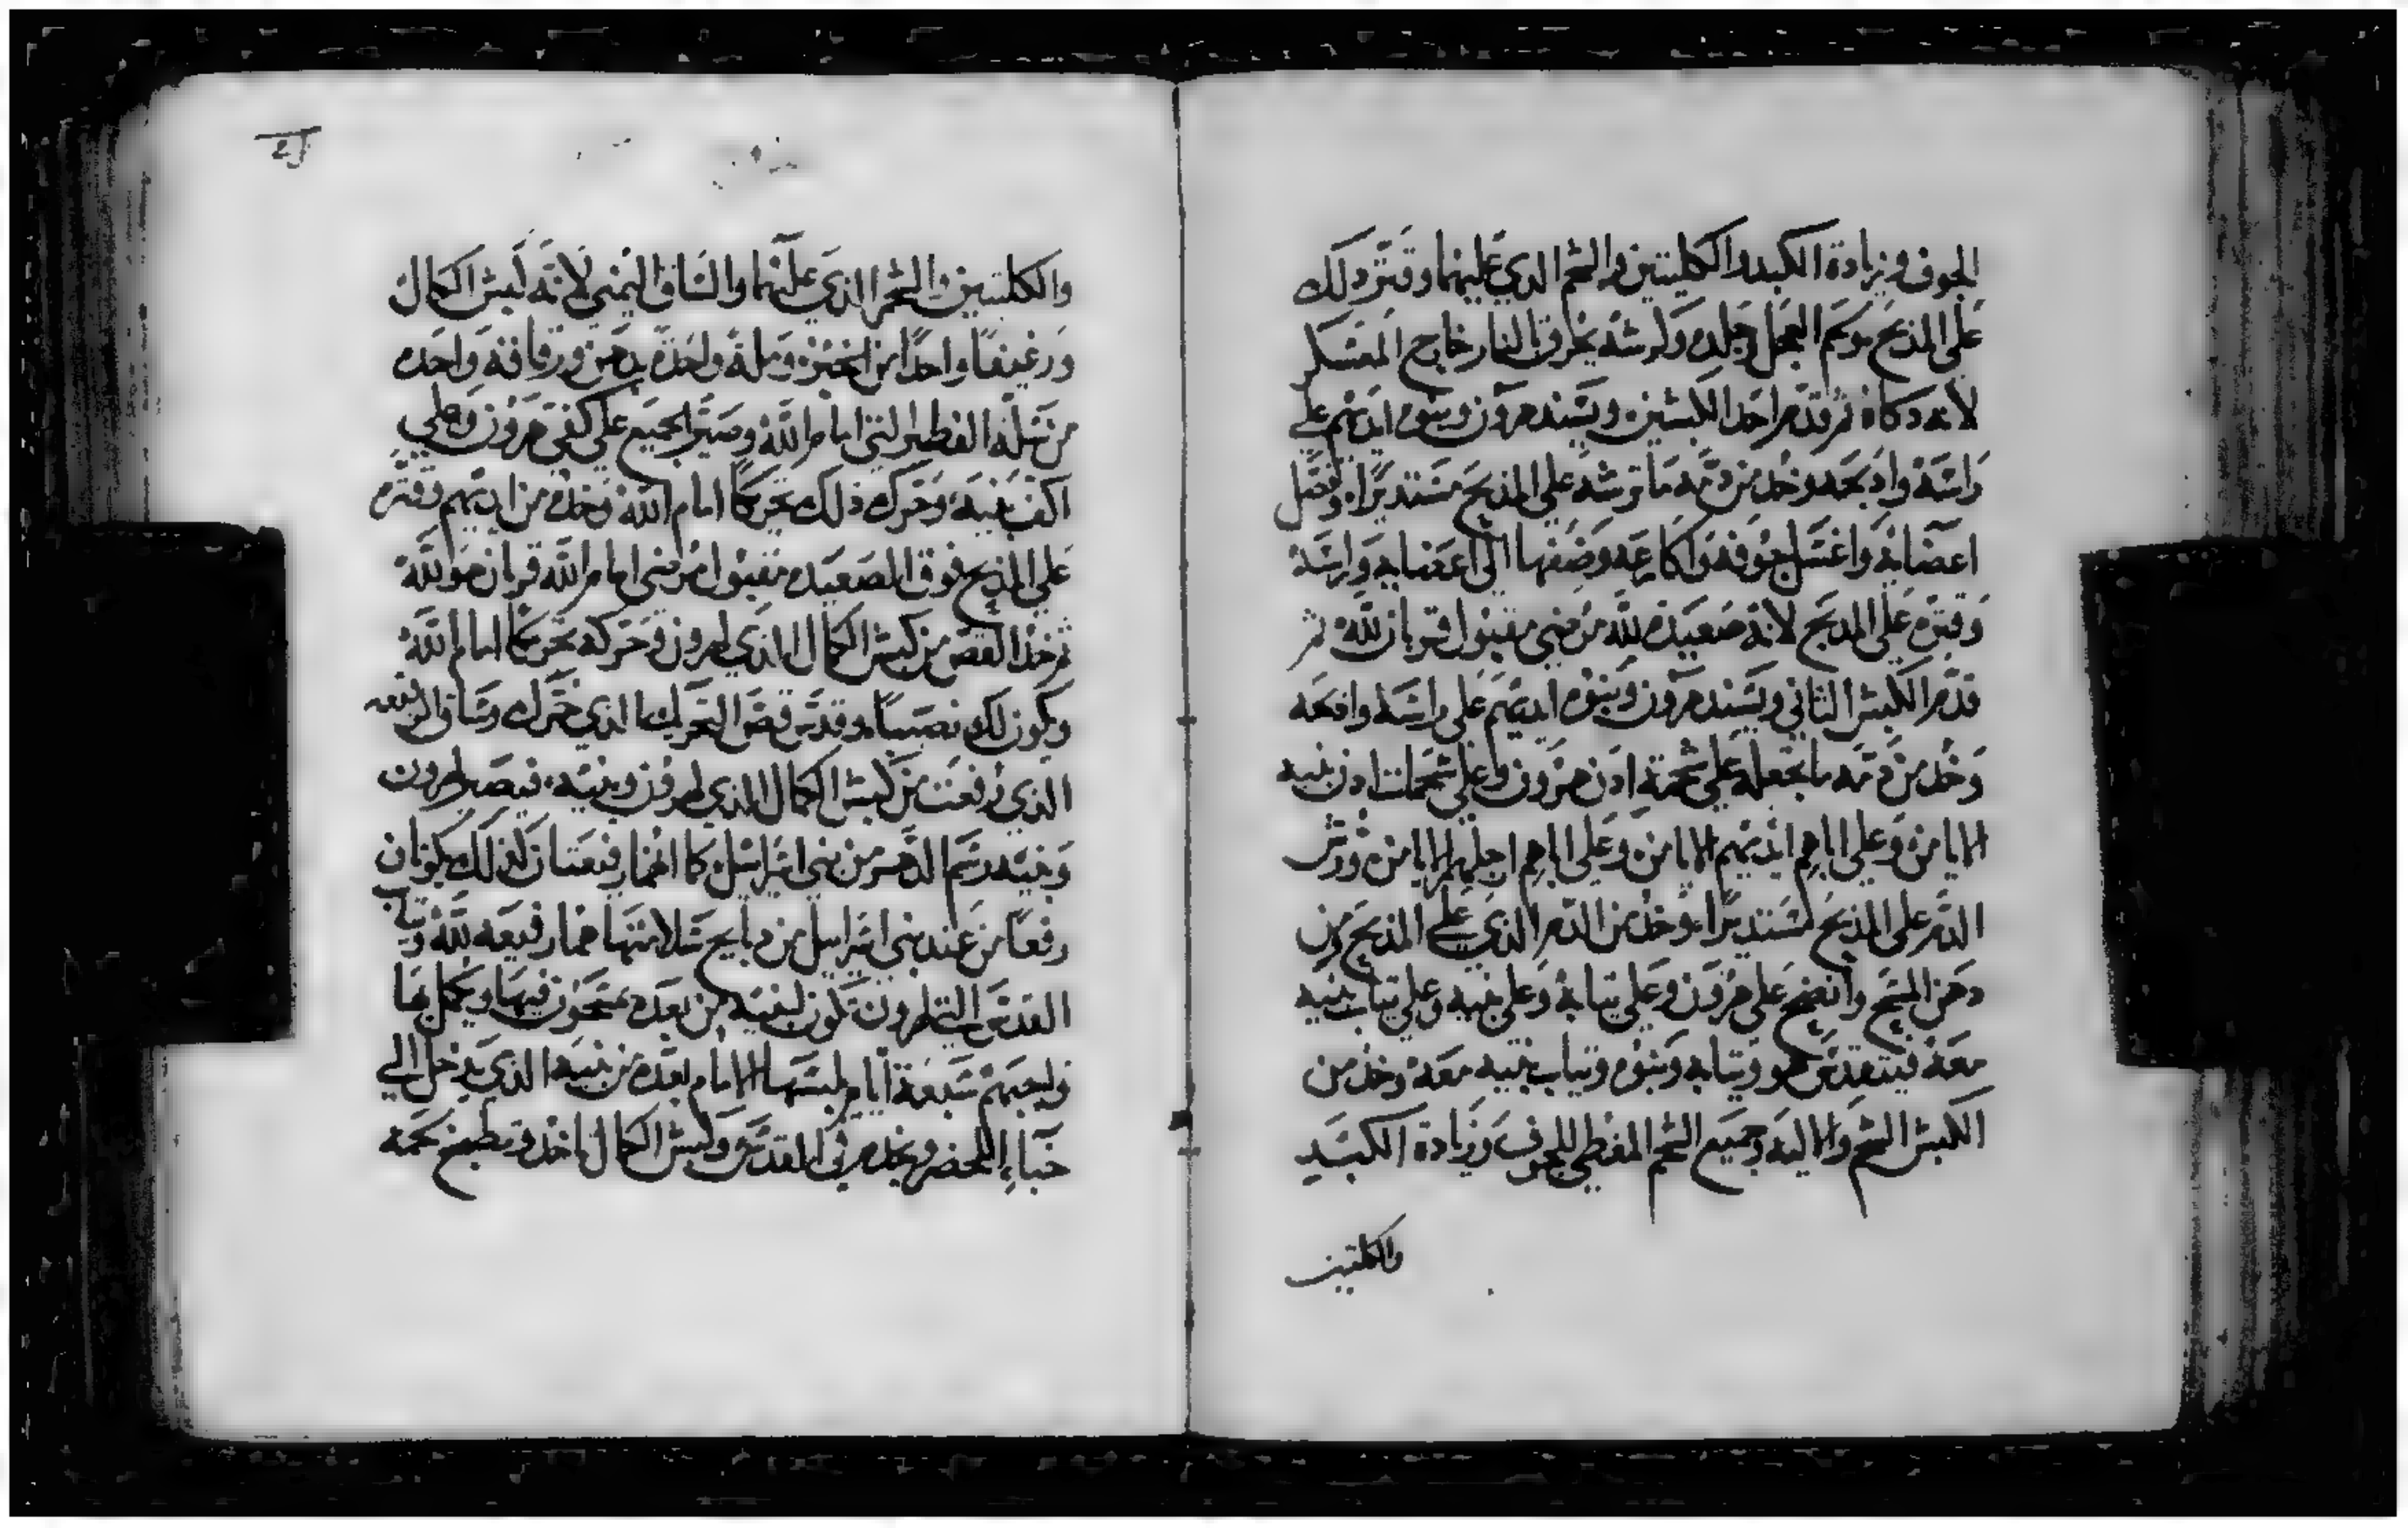 الجوف وزيادة الكبد والكليتين والشحم الذي عليهما وقتر ذلك
على المذبح ولحم العجل وجلده وفرشه يحرق بالنار خارج المعسكر
لانه دكاة ثم قدم احد الكبشين ويسند هرون وبنوه ايديهم على
راسه واذبحه وخذ من دمه ما ترشه على المذبح مستديرا وفصل
اعضايه واغسل جوفه واكارعه وضفها الى اعضايه وراسه
وقتره على المدبح لانه صعيده لله مرضي مقبول قربان لله ثم
قدم الكبش الثاني ويسند هرون وبنوه ايديهم على راسه واذبحه
وخذ من دمه ما تجعله على شحمة اذن هرون وعلى شحمات اذن بنيه
الايامن وعلى اباهم ايديهم الايامن وعلى اباهم ارجلهم الايامن ورش
الدم على المذبح مستديرا وخذ من الدم الذي على المذبح ومن
دهن المسح وانضح على هرون وعلى تيابه وعلى بنيه وعلى تياب بنيه
معه فيتقدس هو وتيابه وبنوه وتياب بنيه معه وخذ من
الكبش الشحم والالية وجميع الشحم المغطي للجوف وزيادة الكبد
والكليتين
والكليتين والشحم الذي عليهما والساق اليمني لانه كبش الكمال
ورغيفا واحدا من الخبز وملة واحدة بدهن ورقاقة واحده
من سلة الفطير التي امام الله وصير الجميع على كفي هرون وعلى
اكف بنيه وحرك ذلك تحريكا امام الله وخذه من ايديهم وقتره
على المذبح فوق الصعيده مقبول مرضي امام الله قربان هو لله
ثم خذ القص من كبش الكمال الذي لهرون وحركه تحريكا امام الله
ويكون لك نصيبا وقدس قص التحريك الذي حرك وساق الرفيعه
الذي رفعت من كبش الكمال الذي لهرون وبنيه فيصير لهرون
وبنيه رسم الدهر من بني اسراييل كما انهما رفيعتان كذلك يكونان
رفعا من عند بني اسراييل من دبايح سلامتها هما رفيعه لله وتياب
القدس التي لهرون تكون لبنيه من بعده يمسحون فيها ويكمل بها
واجبهم سبعة ايام يلبسها الامام بعده من بنيه الذي يدخل الي
خباء المحضر ويخدم في القدس وكبش الكمال تاخذه وتطبخ لحمه